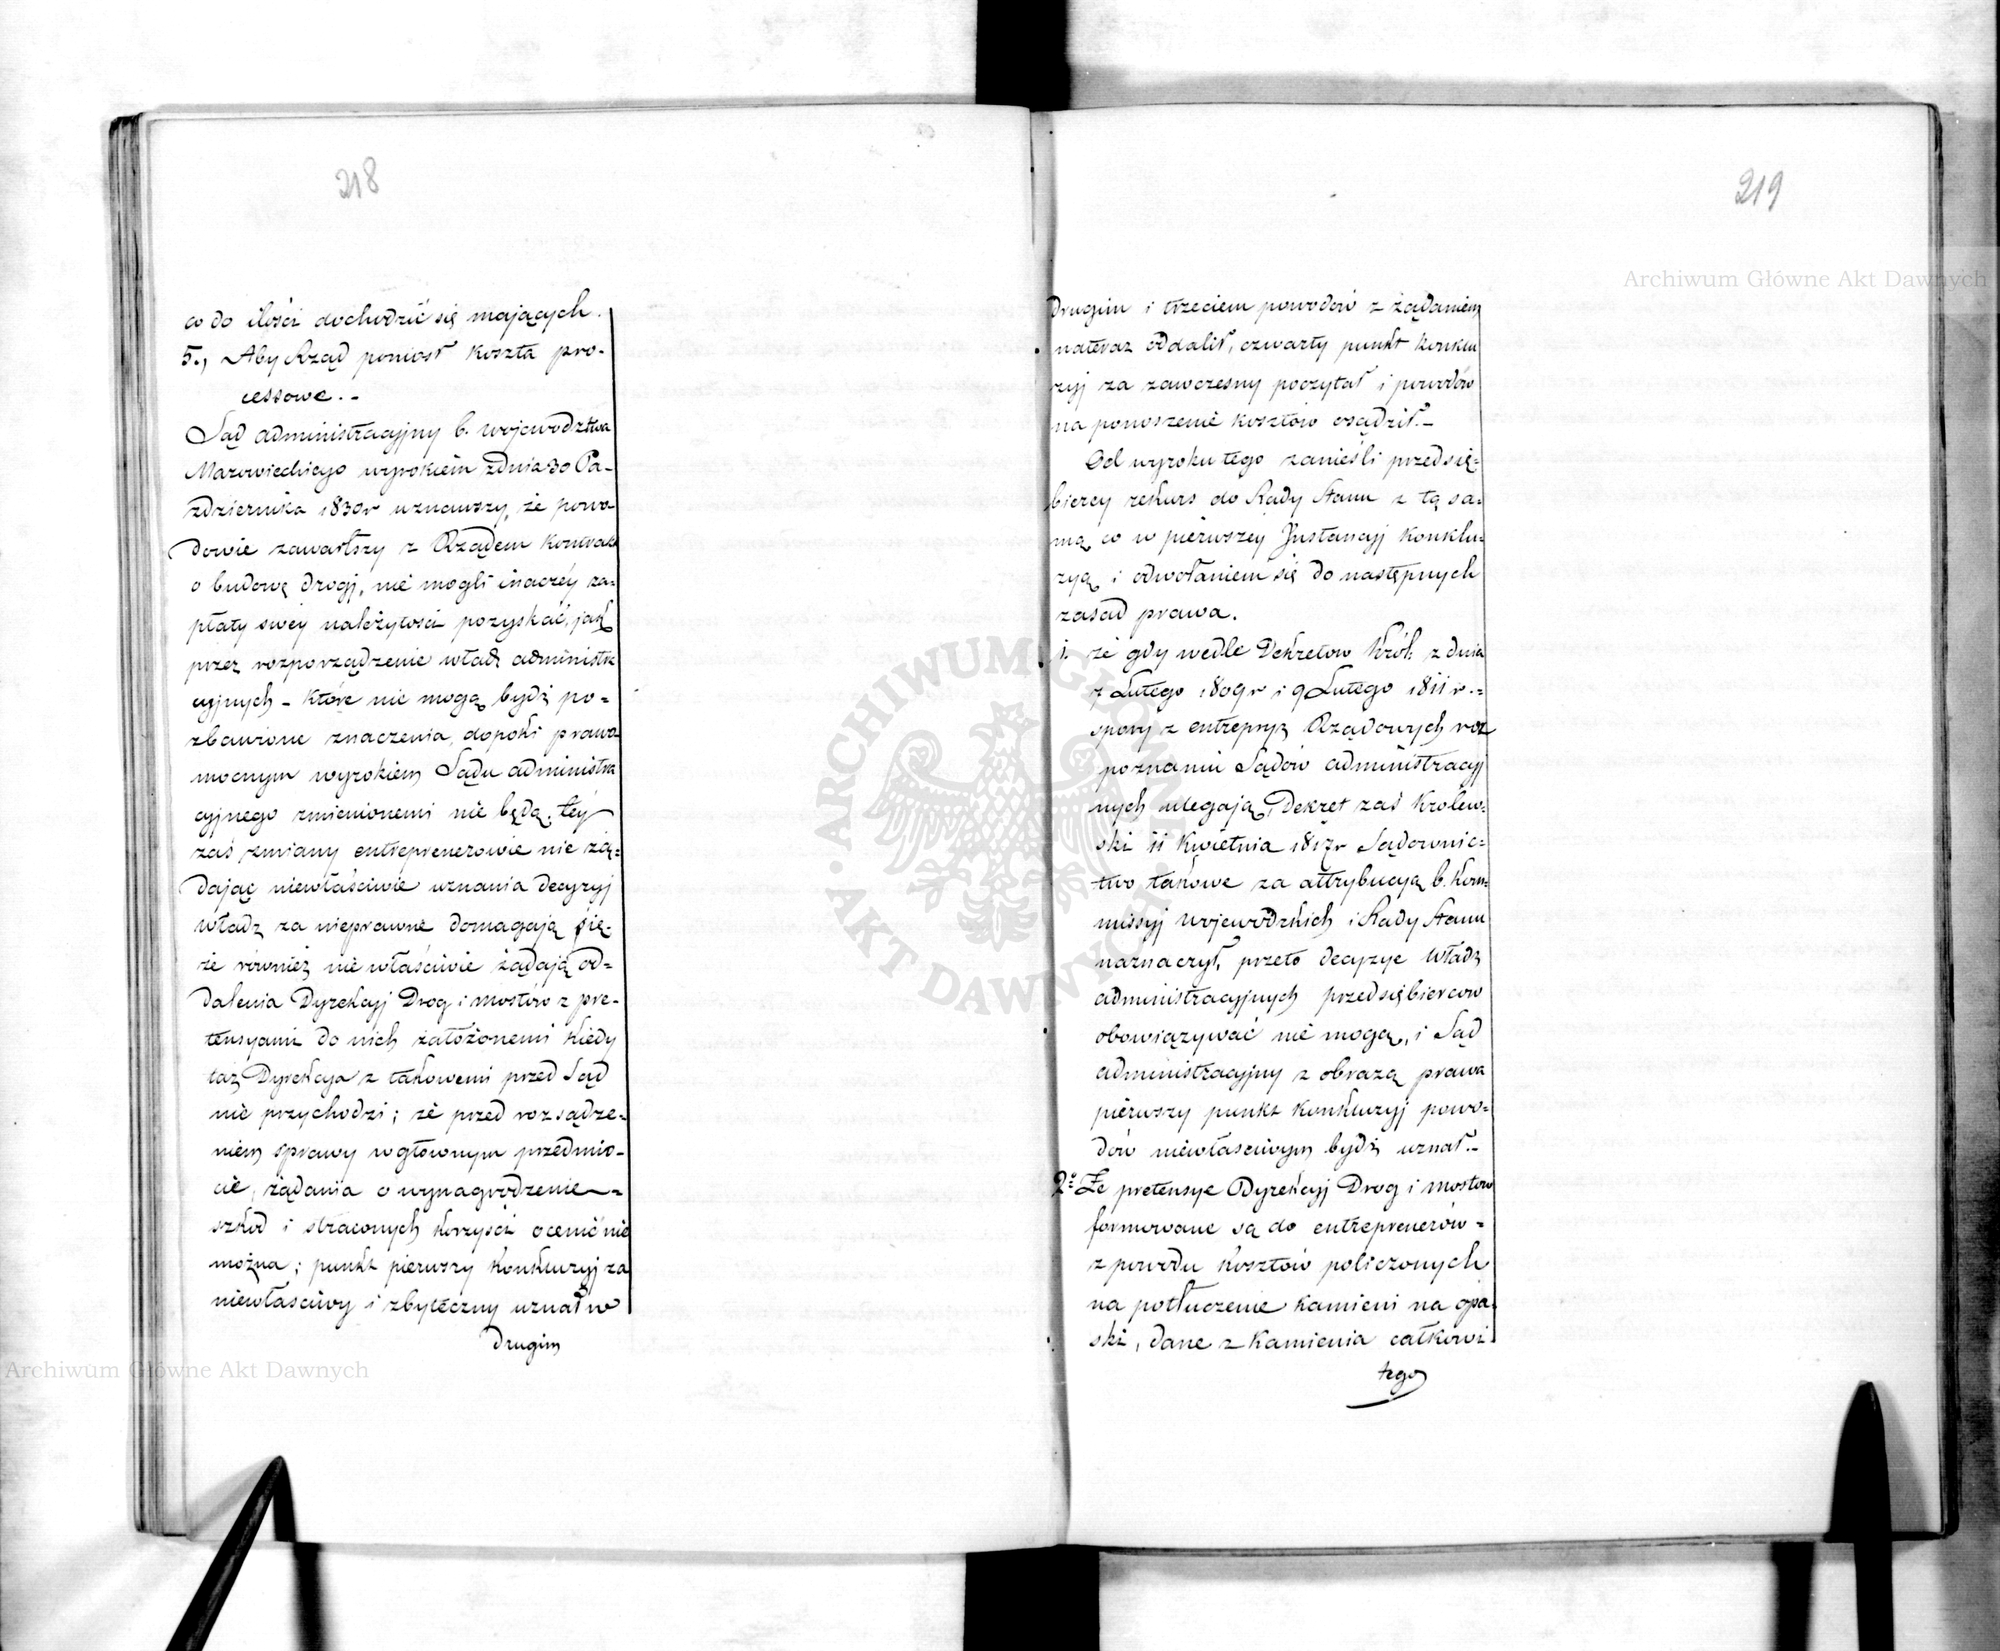 218
co do ilości dochodzić się mających.
5., Aby Rząd poniosł koszta pro-
cessowe. -
Sąd administracyjny b. Wojewodztwa
Mazowieckiego wyrokiem z dnia 30 Pa-
zdziernika 1830 r uznawszy, że powo-
dowie zawarłszy z Rządem kontrakt
o budowę drogj, nie mogli inaczéy za-
płaty swéy należytości pozyskać, jak
przez rozporządzenie władz administra
cyjnych - które nie mogą bydź po-
zbawione znaczenia, dopoki prawo
mocnym wyrokiem Sądu administra
cyjnego zmienionemi nie będą, téy
zaś zmiany entreprenerowie nie żą-
dając niewłaściwie uznania decyzyj
władz za nieprawne domagają się.
że również nie właściwie żądają od-
dalenia Dyrekcyj Drog i mostów z pre-
tensyami do nich założonemi kiedy
taż Dyrekcya z takowemi przed Sąd
nie przychodzi; że przed rozsądze-
niem sprawy w głównym przedmio-
cie, żądania o wynagrodzenie -
szkod i straconych korzyści ocenić nie
można; punkt pierwszy konkluzyj za
niewłaściwy i zbyteczny uznał w
drugim
219
drugim i trzeciem powodów z żądaniem
nateraz oddalił, czwarty punkt konklu
zyj za zawczesny poczytał i powodów
na ponoszenie kosztów osądził. -
Od wyroku tego zanieśli przedsię-
biercy rekurs do Rady Stanu z tą sa-
mą co w pierwszey Instancyj konklu-
zyą i odwołaniem się do następnych
zasad prawa.
1. że gdy wedle Dekretow Król: z dnia
7 Lutego 1809 r i 9 Lutego 1811 r. -
spory z entrepryz Rządowych roz
poznaniu Sądów administracyj
nych ulegają, Dekret zaś Królew-
ski 11 Kwietnia 1817 r Sądownic-
two takowe za attrybucyą b. Kom-
missyj Wojewodzkich i Rady Stanu
naznaczył, przeto decyzye Władz
administracyjnych przedsiębiercow
obowiązywać nie mogą, i Sąd
administracyjny z obrazą prawa
pierwszy punkt konkluzyj powo-
dów niewłaściwym bydź uznał. -
2° Że pretensye Dyrekcyj Drog i mostow
formowane są do entreprenerów -
z powodu kosztów policzonych
na potłuczenie kamieni na opa-
ski, dane z kamienia całkowi
tego
Archiwum Główne Akt Dawnych
Archiwum Główne Akt Dawnych
ARCHIWUM GŁÓWNE
AKT DAWNYCH